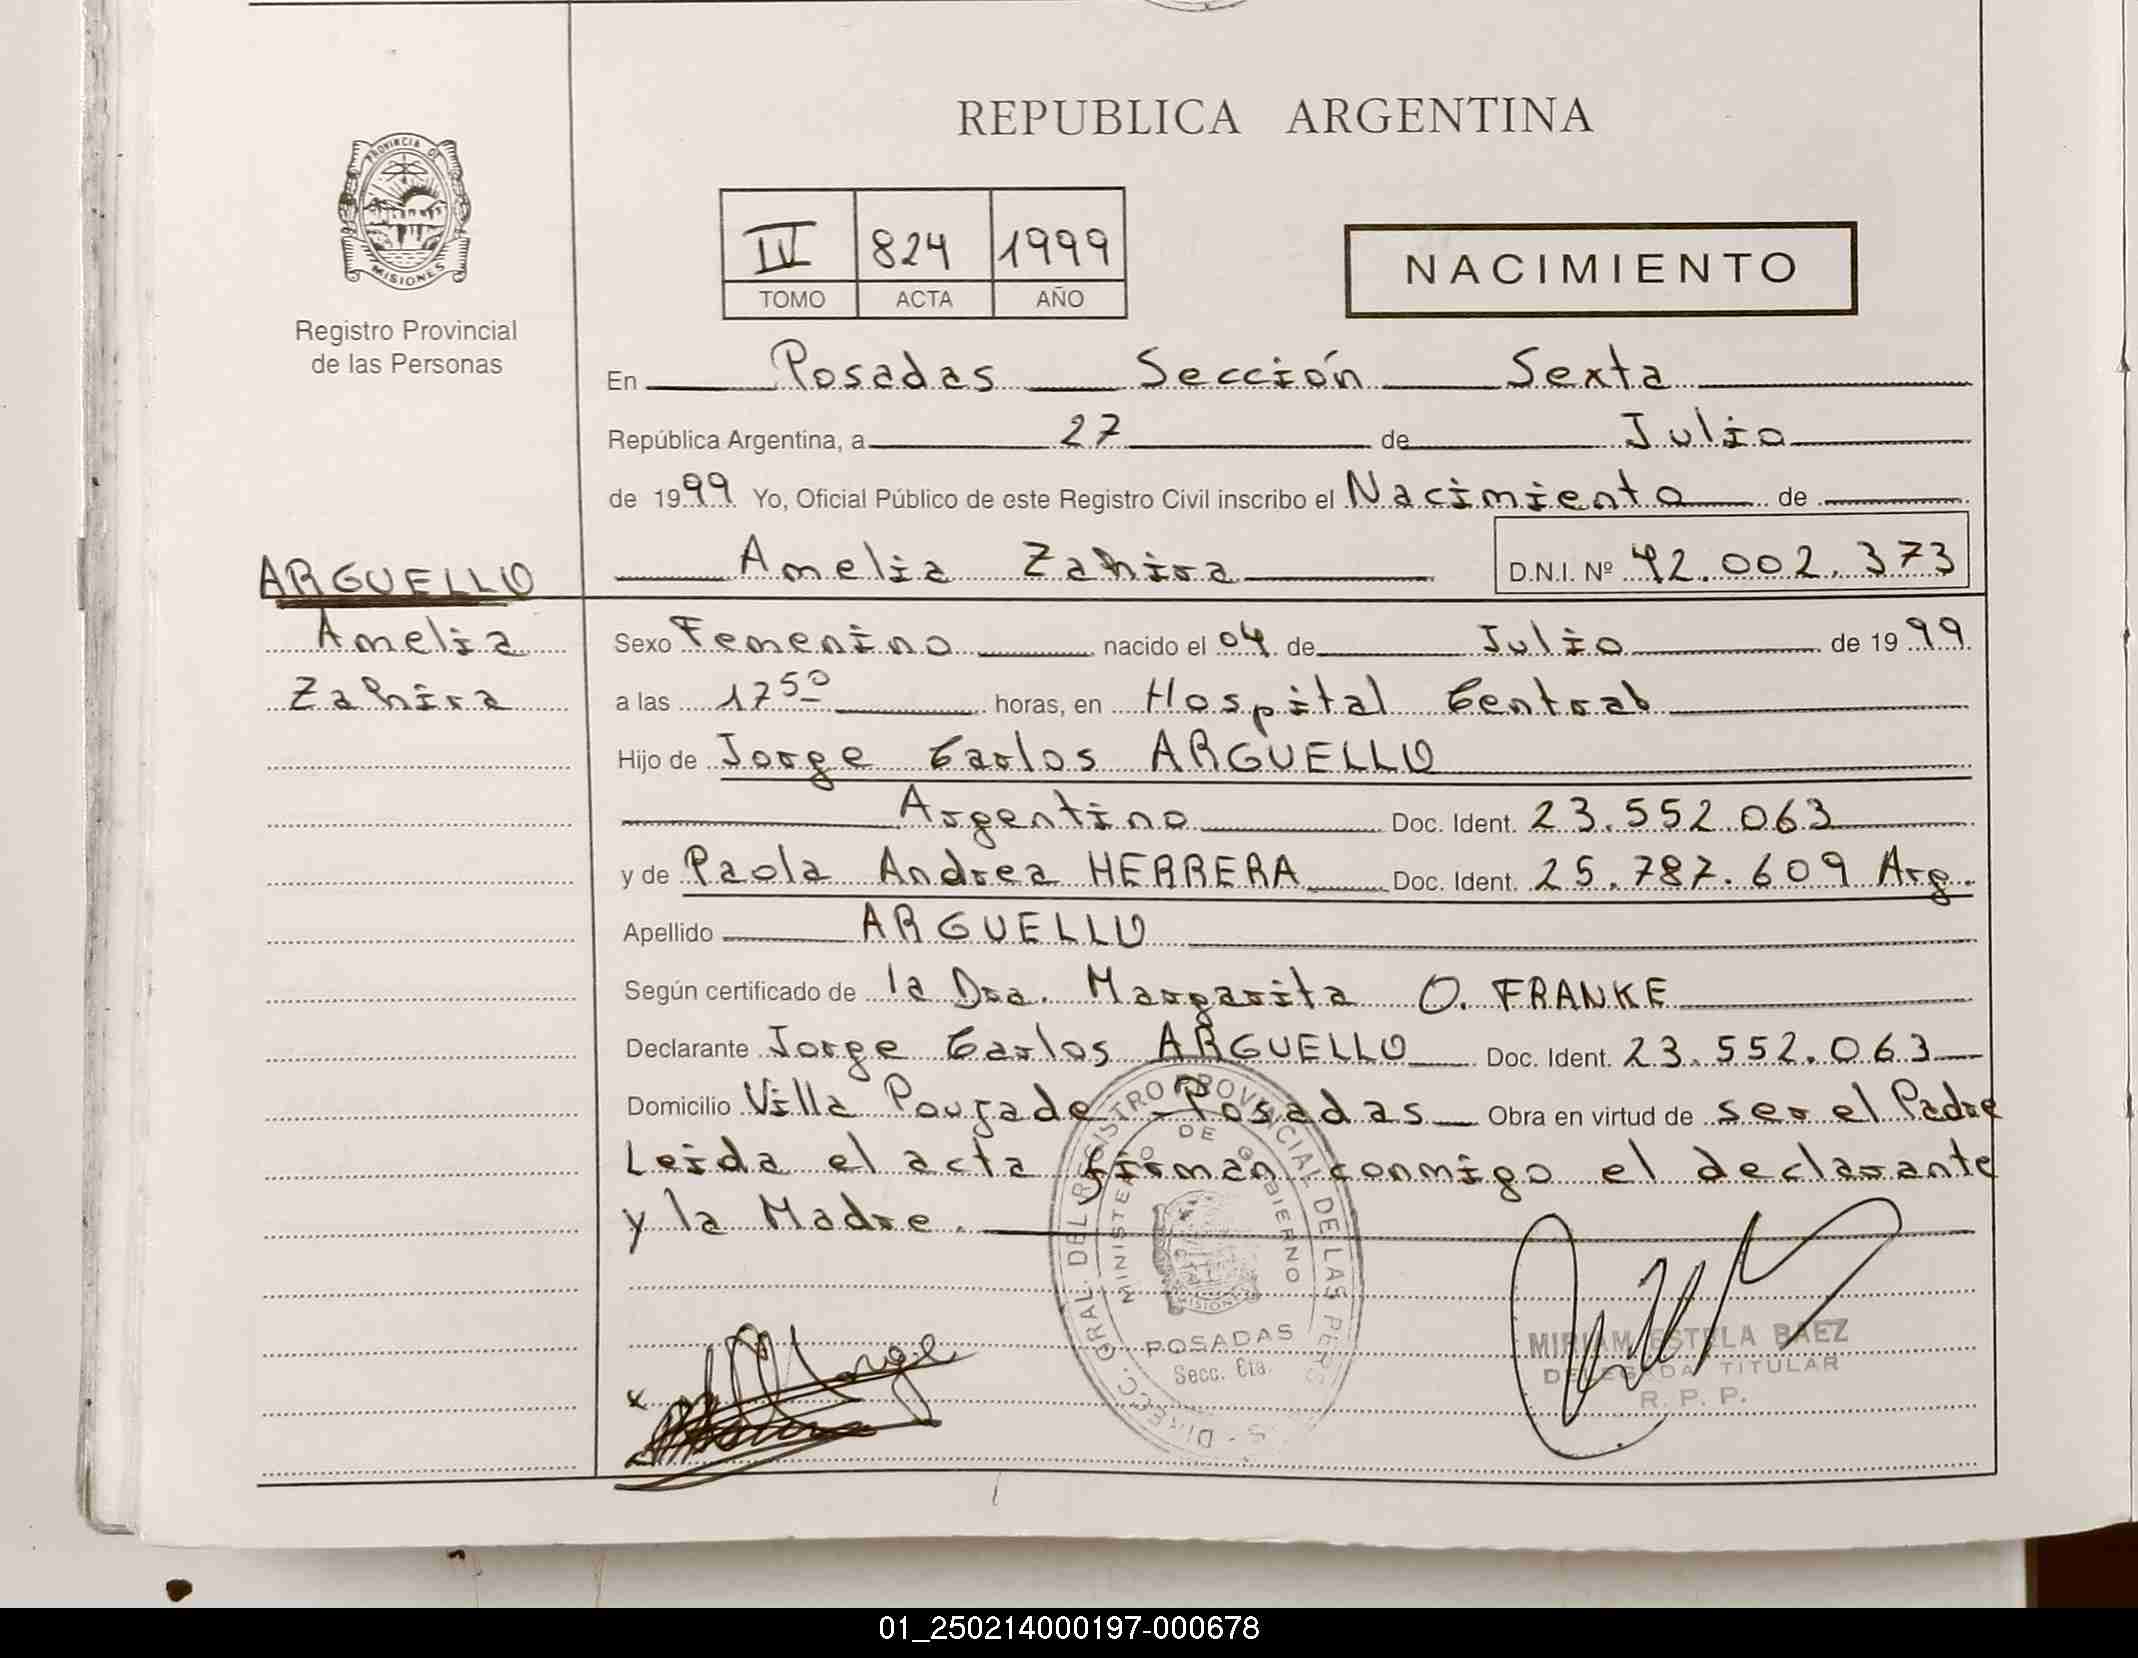 REPUBLICA ARGENTINA
PROVINCIA DE
MISIONES
Registro Provincial
de las Personas
IV 824 1999
TOMO ACTA AÑO
NACIMIENTO
En Posadas Sección Sexta
República Argentina, a 27 de Julio
de 1999 Yo, Oficial Público de este Registro Civil inscribo el Nacimiento de
Amelia Zahira D.N.I. Nº 42.002.373
ARGUELLO
Amelia
Zahira
Sexo Femenino nacido el 04 de Julio de 1999
a las 17 50 horas, en Hospital Central
Hijo de Jorge Carlos ARGUELLO
Argentino Doc. Ident. 23.552.063
y de Paola Andrea HERRERA Doc. Ident. 25.787.609 Arg.
Apellido ARGUELLO
Según certificado de la Dra. Margarita O. FRANKE
Declarante Jorge Carlos ARGUELLO Doc. Ident. 23.552.063
Domicilio Villa Poujade - Posadas Obra en virtud de ser el Padre
Leida el acta firman conmigo el declarante
y la Madre.
DIRECC. GRAL. DEL REGISTRO PROVINCIAL DE LAS PERS
MINISTERIO DE GOBIERNO
MISIONES
POSADAS
Secc. 6ta.
Jorge
MIRIAM ESTELA BAEZ
DELEGADA TITULAR
R. P. P.
01_250214000197-000678